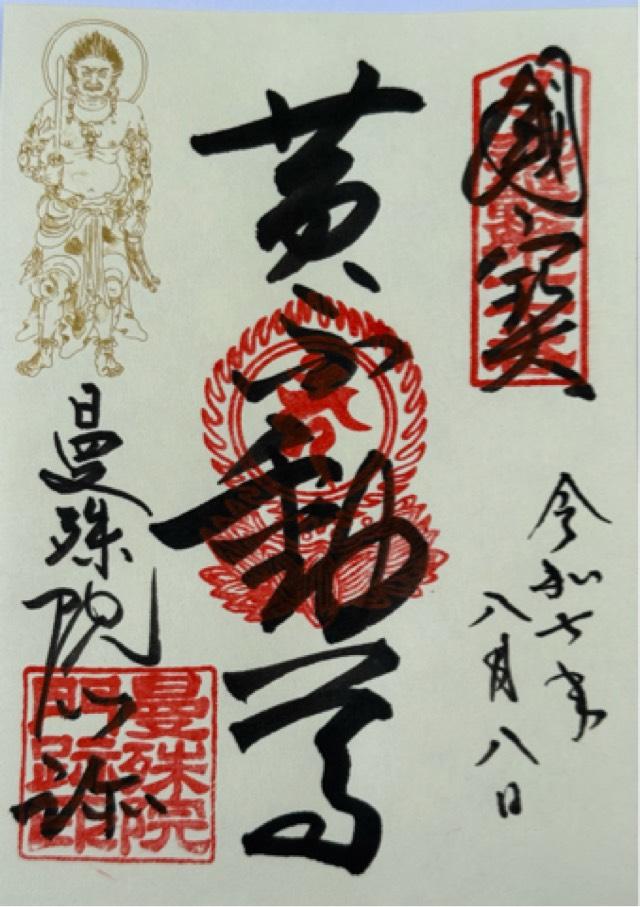 國寶
令和七年
八月八日
黄不動尊
曼殊院門跡
曼殊院
門跡印